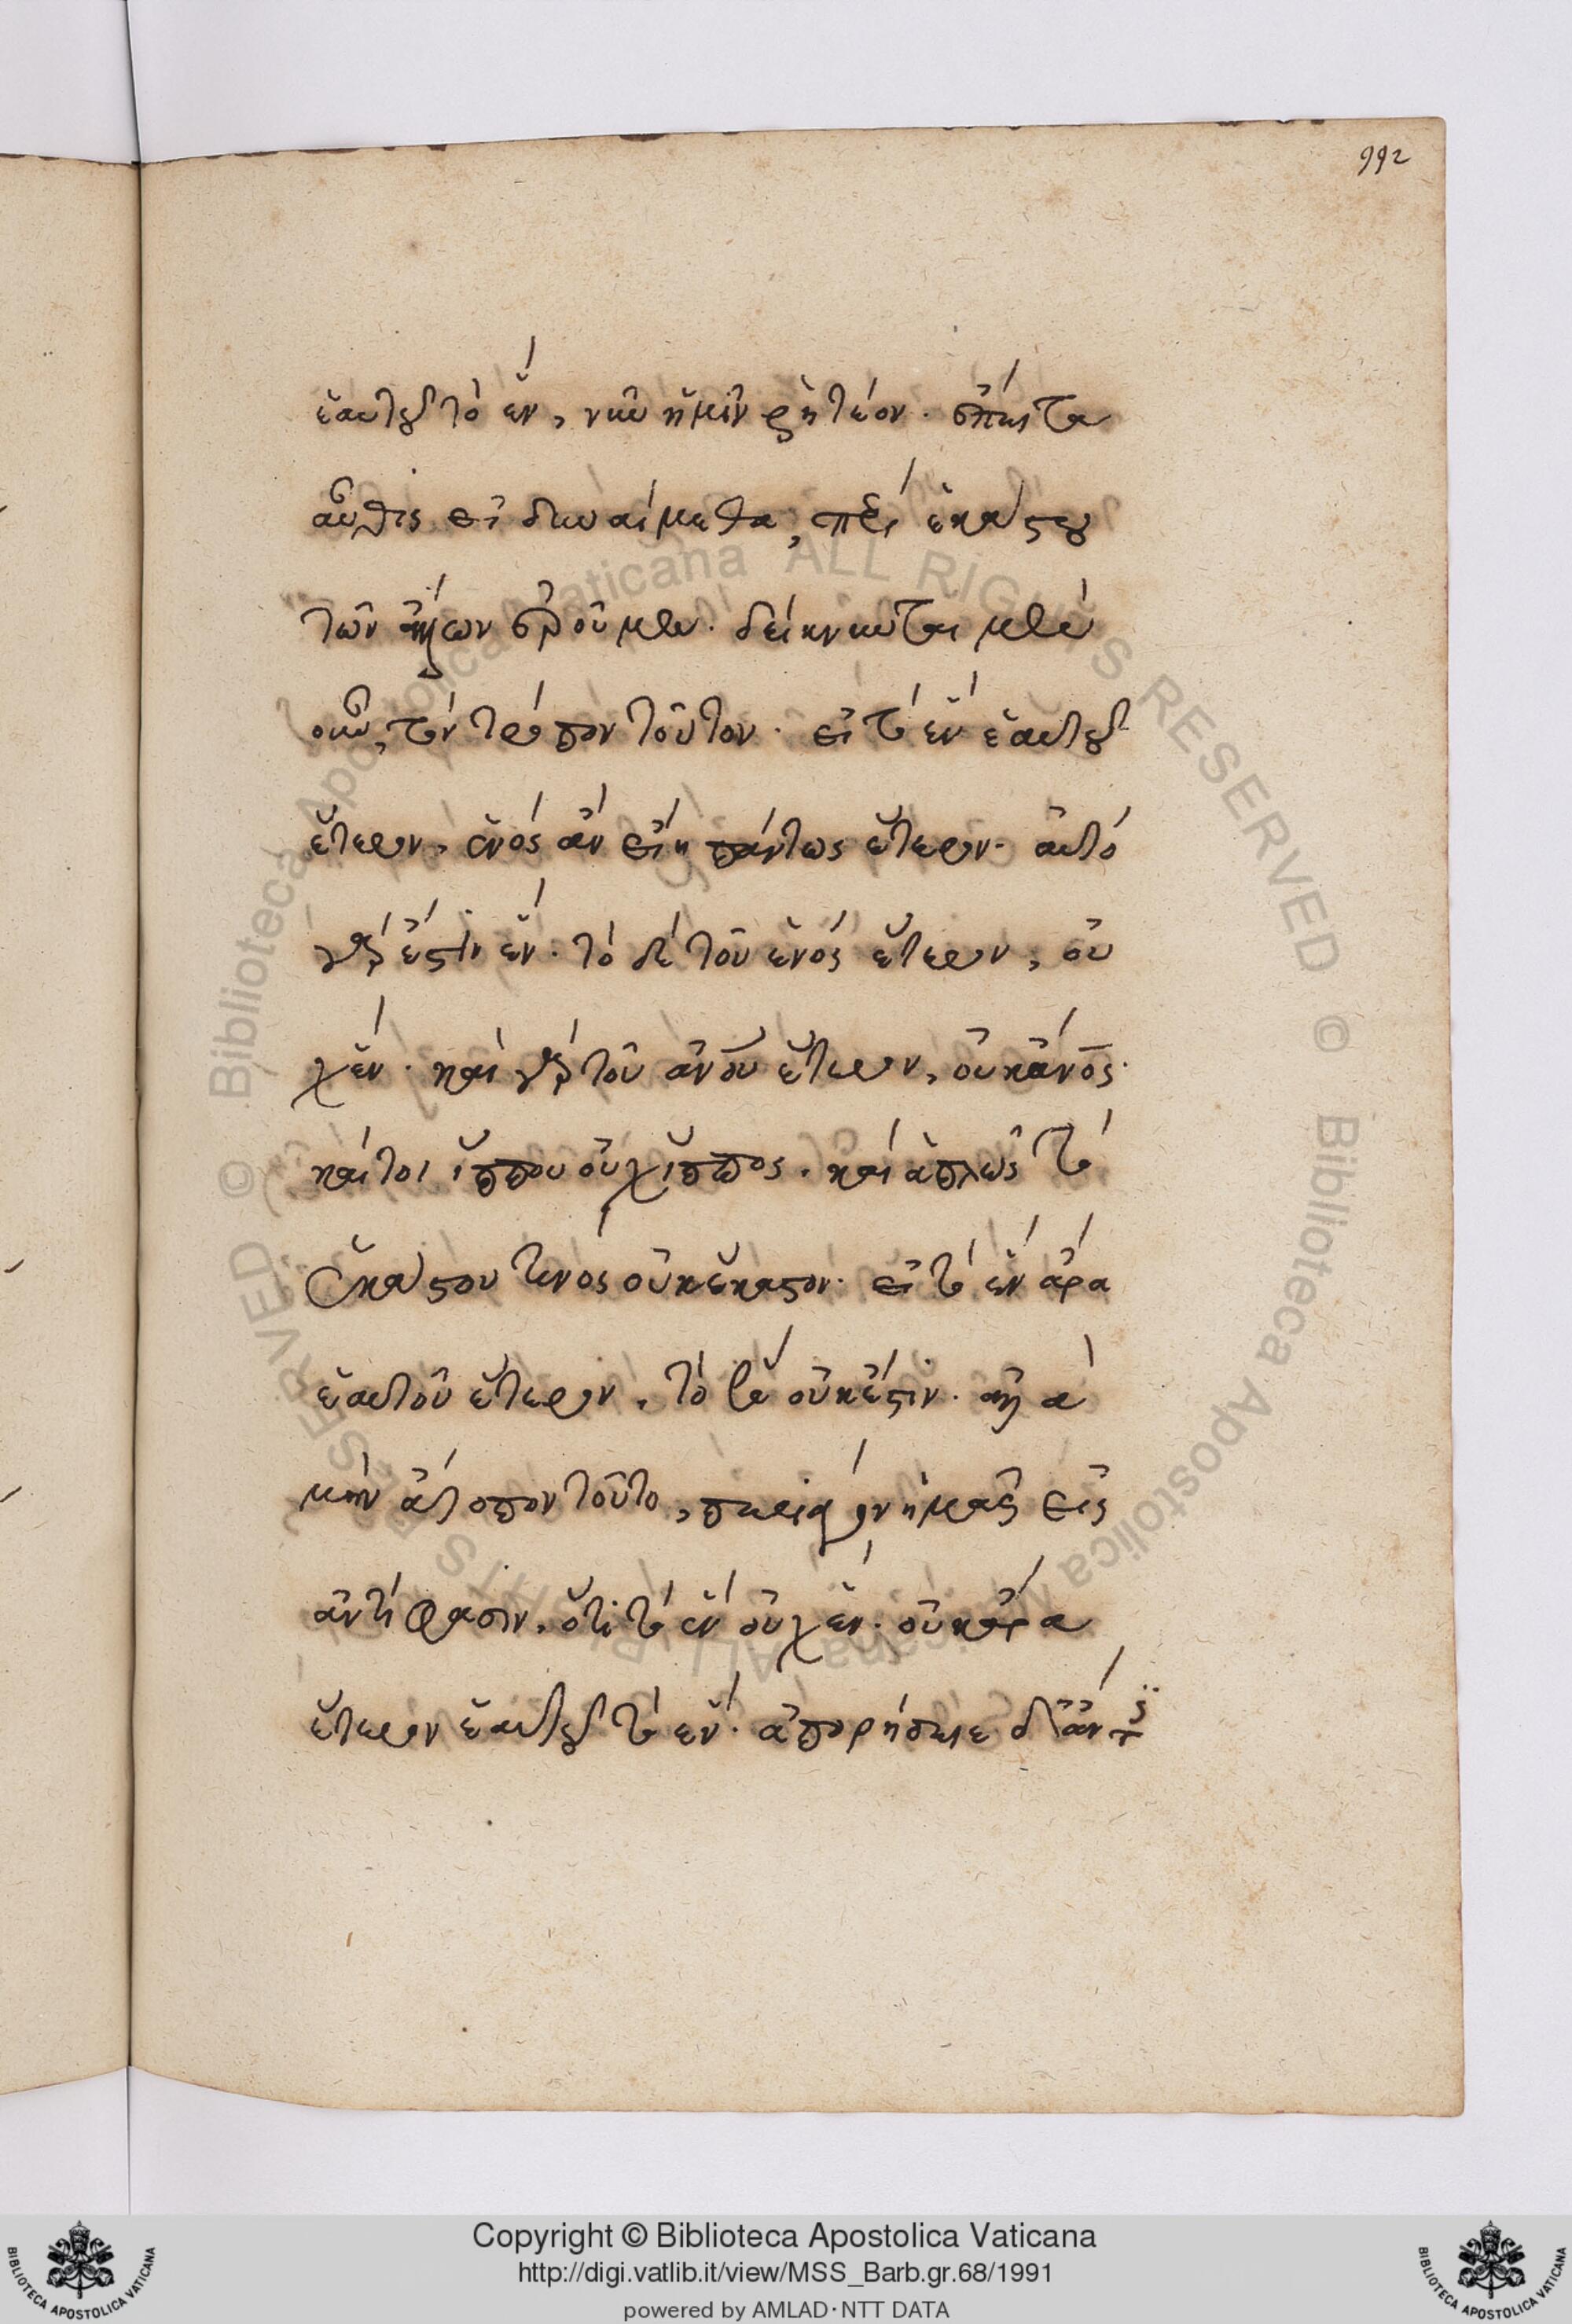 992
ἑαυτοῦ τὸ ἕν, νῦν ἡμῖν ῥητέον. ἔπειτα
αὖθις εἰ δυναίμεθα, περὶ ἑκάστου
τῶν ἄλλων ἐροῦμεν. δείκνυται μὲν
οὖν, τὸν τρόπον τοῦτον. εἰ τὸ ἓν ἑαυτοῦ
ἕτερον, ἑνὸς ἂν εἴη πάντως ἕτερον. αὐτὸ
γάρ ἐστιν ἕν. τὸ δὲ τοῦ ἑνὸς ἕτερον, οὐ
χ ἕν. καὶ γὰρ τοῦ ἀνου ἕτερον, οὐκ ἀνος.
καίτοι ἵππου οὐχ ἵππος. καὶ ἁπλῶς τὸ
ἑκάστου τινὸς οὐκ ἕκαστον. εἰ τὸ ἓν ἄρα
ἑαυτοῦ ἕτερον, τὸ ἓν οὐκ ἔστιν. ἀλλὰ
μὴν ἄτοπον τοῦτο, περιάγον ἡμᾶς εἰς
ἀντίφασιν, ὅτι τὸ ἓν οὐχ ἕν. οὐκ ἄρα
ἕτερον ἑαυτοῦ τὸ ἕν. ἀπορήσειε δ' ἄν τις
Copyright © Biblioteca Apostolica Vaticana
http://digi.vatlib.it/view/MSS_Barb.gr.68/1991
powered by AMLAD·NTT DATA
BIBLIOTECA APOSTOLICA VATICANA
BIBLIOTECA APOSTOLICA VATICANA
© Biblioteca Apostolica Vaticana ALL RIGHTS RESERVED © Biblioteca Apostolica Vaticana ALL RIGHTS RESERVED